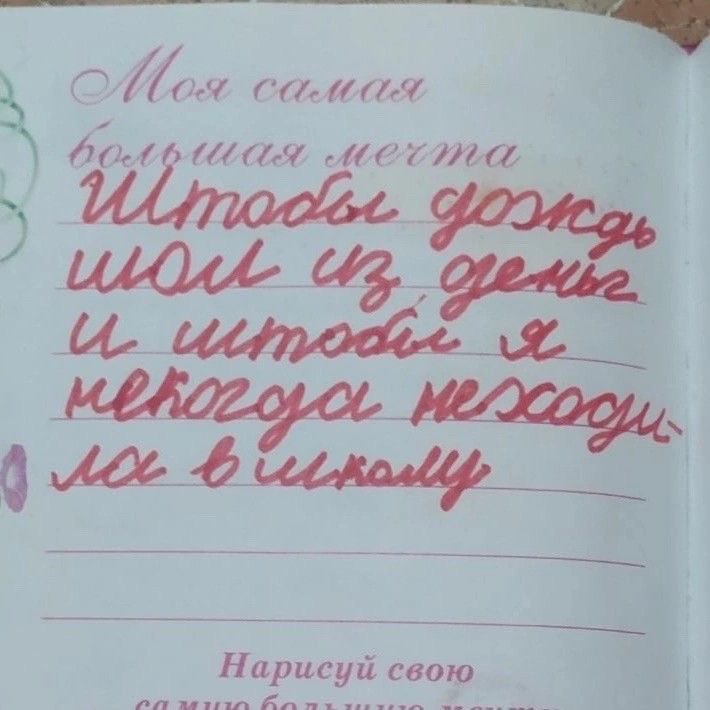 Моя самая
большая мечта
Штобы дождь
шол из деньг
и штобы я
некогда неходи-
ла в школу
Нарисуй свою
самую большую мечту